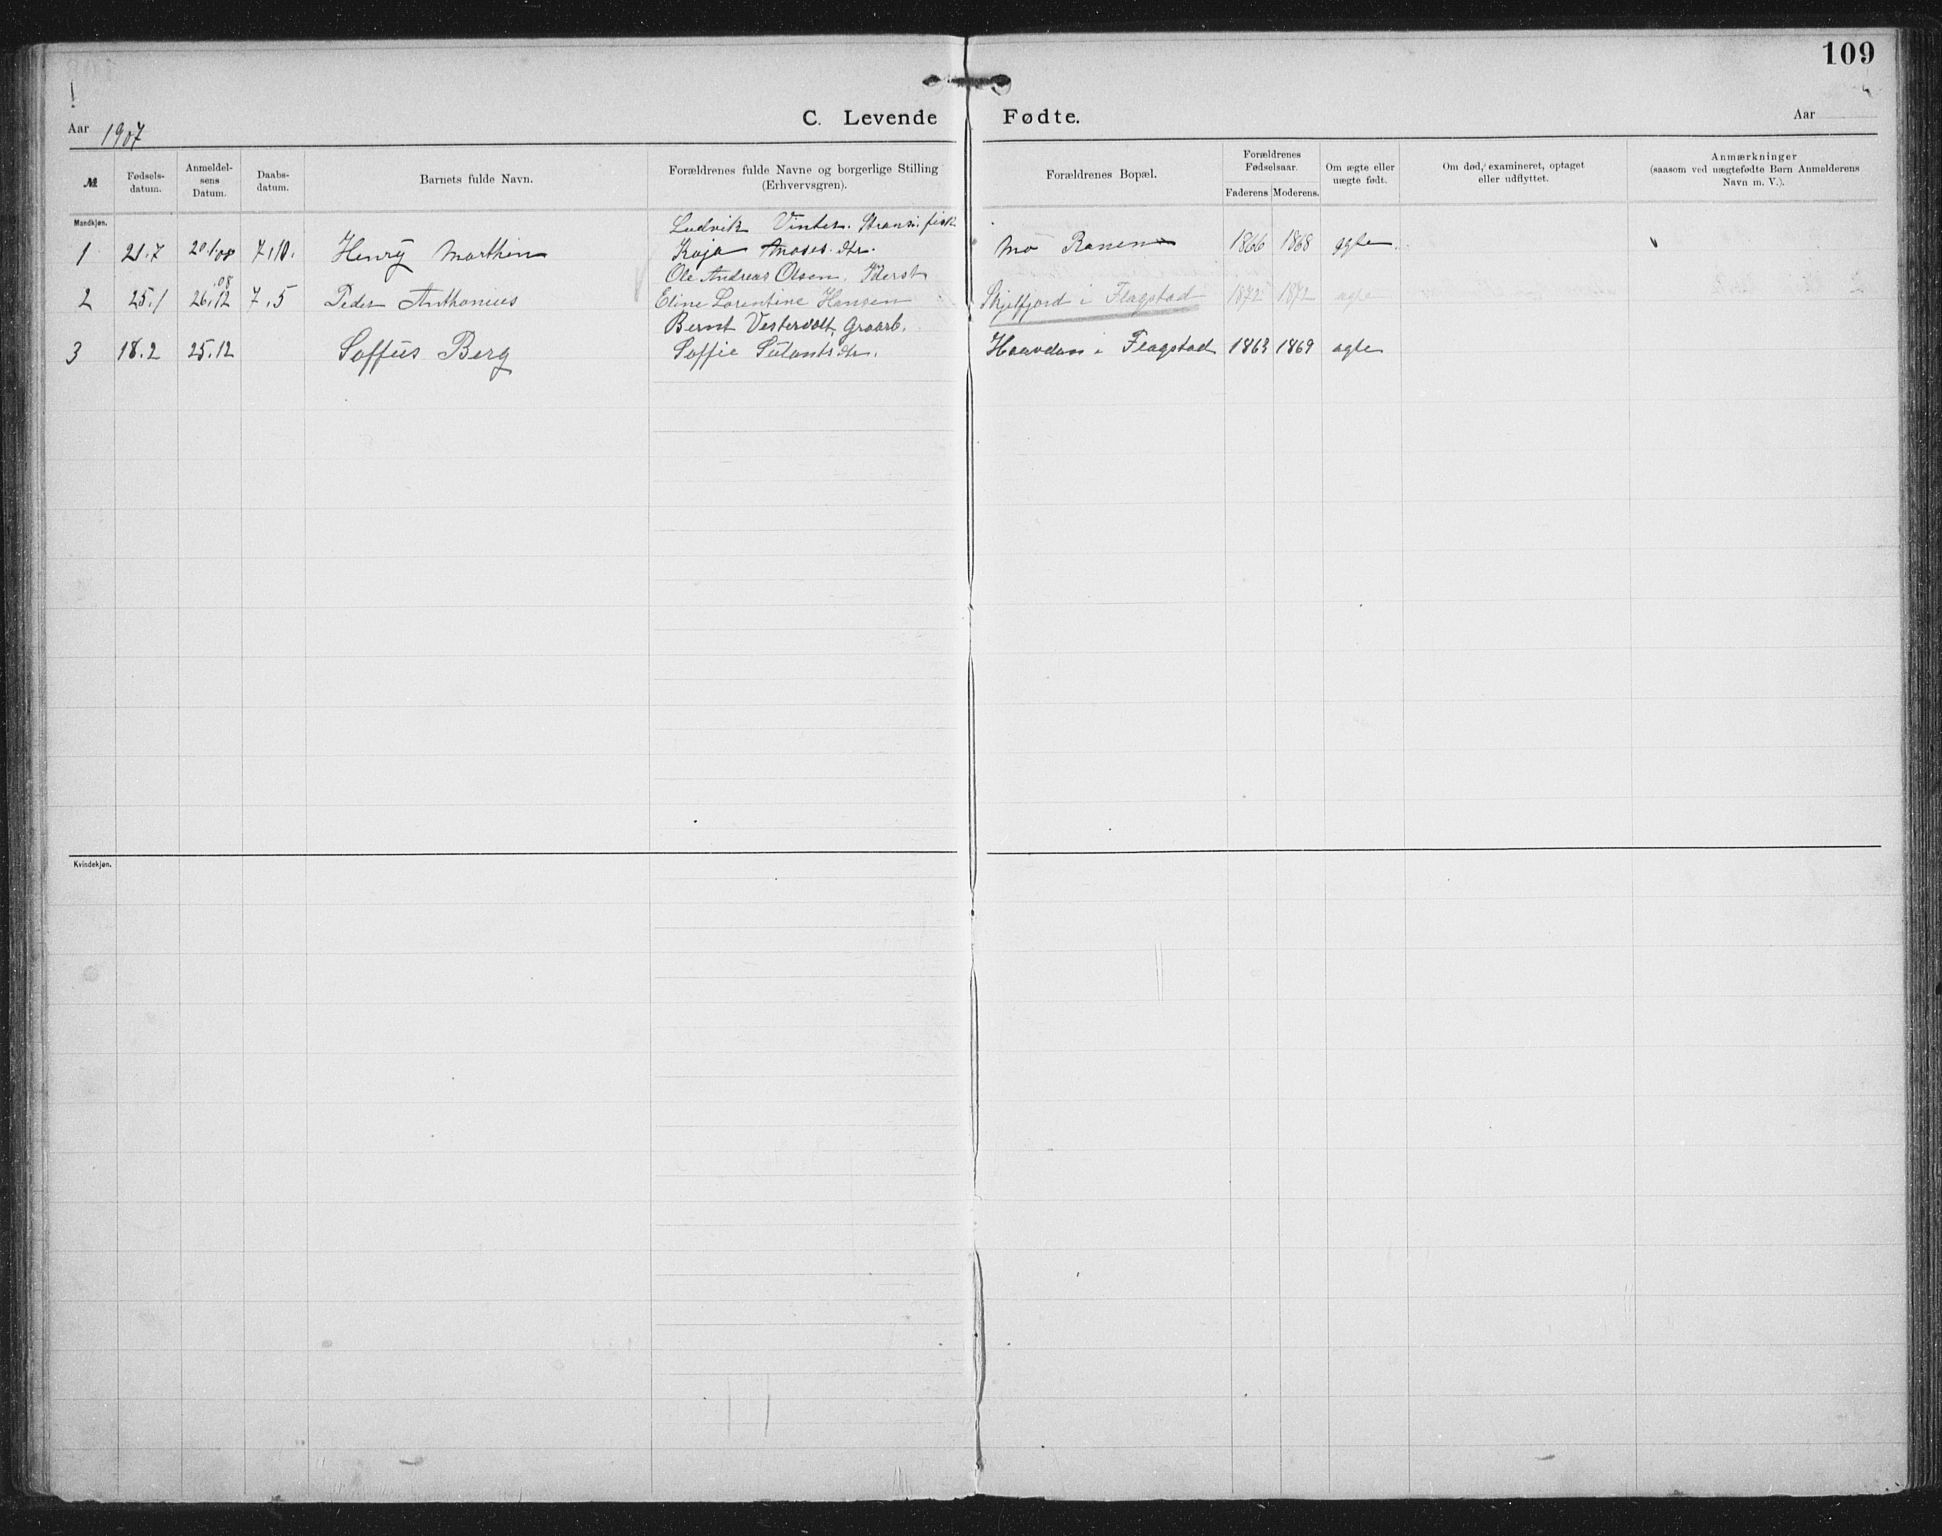 109
C. Levende Fødte.
Aar 1907
Aar
№
Fødsels-
datum.
Anmeldel-
sens
Datum.
Daabs-
datum.
Barnets fulde Navn.
Forældrenes fulde Navne og borgerlige Stilling
(Erhvervsgren).
Forældrenes Bopæl.
Forældrenes
Fødselsaar.
Faderens Moderens.
Om ægte eller
uægte født.
Om død, examineret, optaget
eller udflyttet.
Anmærkninger
(saasom ved uægtefødte Børn Anmelderens
Navn m. V.).
Mandkjøn.
Ludvik Vinter
1 21.7 20.1/08 7,10. Henry Marthin Kaja Moses.dtr. Mo Ranen 1866 1868 ægte
Ole Andreas Olsen.
.08
2 25.1 26.12 7.5 Peder Anthonius Eline Lorentine Hansen Skjelfjord i Flagstad 1872 1872 ægte
Bernt Graarb.
3 18.2 25.12 Soffus Berg Soffie i Flagstad 1863 1869 ægte
Kvindekjøn.